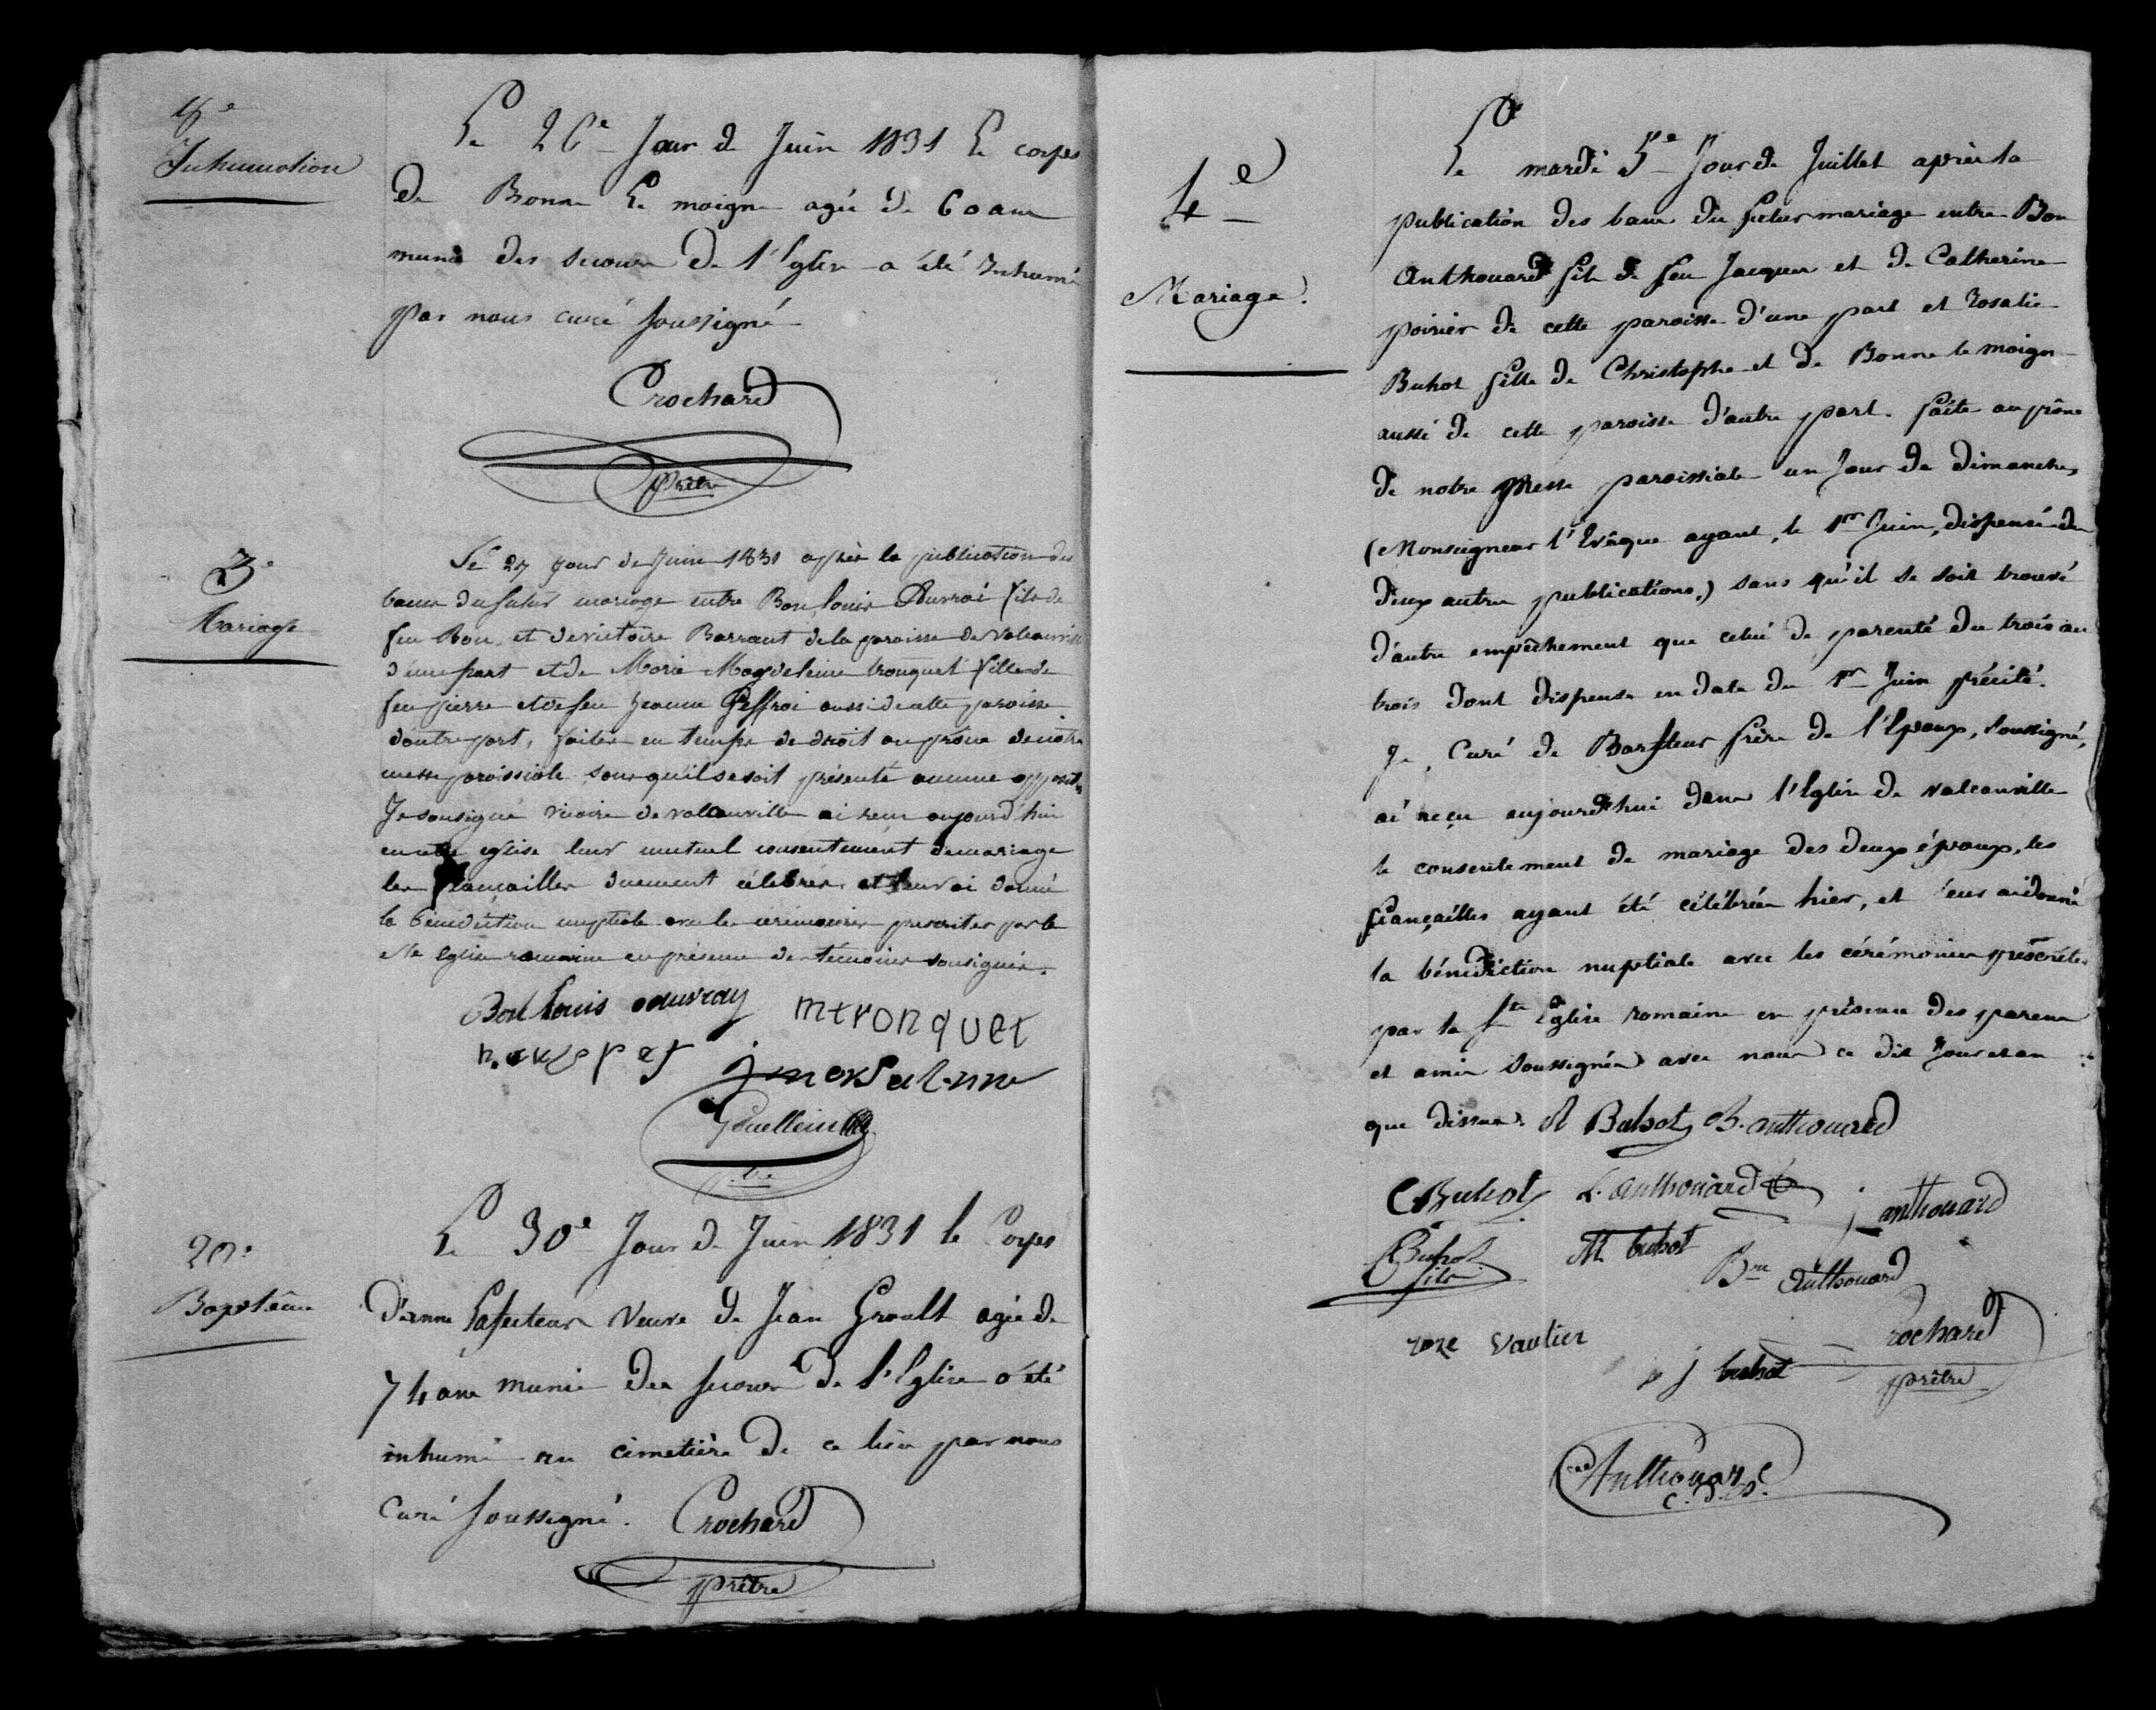 Inhumation
Le 26e Jour de Juin 1831 Le corps
de Bonne Le moigne agée de 60 ans
munie des secours de l'Eglise a été Inhumé
par nous curé soussigné
Crochard
prêtre
3e
Mariage
Le 27 jour de Juin 1831 après la publication des
bans du futur mariage entre Bon Louis Duvrai fils de
feu Bon et de victoire Barraut de la paroisse de Valcanville
d'une part et de Marie Magdeleine tronquet fille de
feu pierre et de feu jeanne Geffroi aussi de cette paroisse
d'autre part, faites en temps de droit au prône de notre
messe paroissiale sans qu'il se soit présenté aucune
Je soussigné vicaire de valcanville ai reçu aujourd'hui
en notre église leur mutuel consentement de mariage
les fiançailles duement célébrées et leur ai donné
la bénédiction nuptiale avec les cérémonies prescrites par la
Ste Eglise romaine en présence des témoins soussignés.
Bon Louis
mtronquet
Le 30e Jour de Juin 1831 le Corps
d'anne veuve de Jean Groult agée de
74 ans munie des secours de l'Eglise a été
inhumé au cimetière de ce lieu par nous
Curé soussigné. Crochard
prêtre
20e
Baptême
4e
Mariage.
Le mardi 5e Jour de Juillet après la
publication des bans du futur mariage entre Bon
Anthouard fils de feu Jacques et de Catherine
poirier de cette paroisse d'une part et Rosalie
Buhot fille de Christophe et de Bonne le moigne
aussi de cette paroisse d'autre part. faite au prône
de notre Messe paroissiale un Jour de dimanche,
(Monseigneur l'Evêque ayant, le 1er Juin, dispensé des
deux autres publications,) sans qu'il se soit trouvé
d'autre empêchement que celui de parenté du trois au
trois dont dispense en date du 1er Juin précité.
Je, Curé de Barfleur frère de l'Epoux, soussigné,
ai reçu aujourd'hui dans l'Eglise de valcanville
le consentement de mariage des deux époux, les
fiançailles ayant été célébrées hier, et leur ai donné
la bénédiction nuptiale avec les cérémonies prescrites
par la Ste Eglise romaine en présence des parens
et amis soussignés avec nous ce dit Jour et an
que dessus. R Buhot B. anthouard
C Buhot L. anthouard j anthouard
C Buhot fils M buhot Bne Anthouard
roze vautier j buhot Crochard
prêtre
Anthouard
c. d. B.